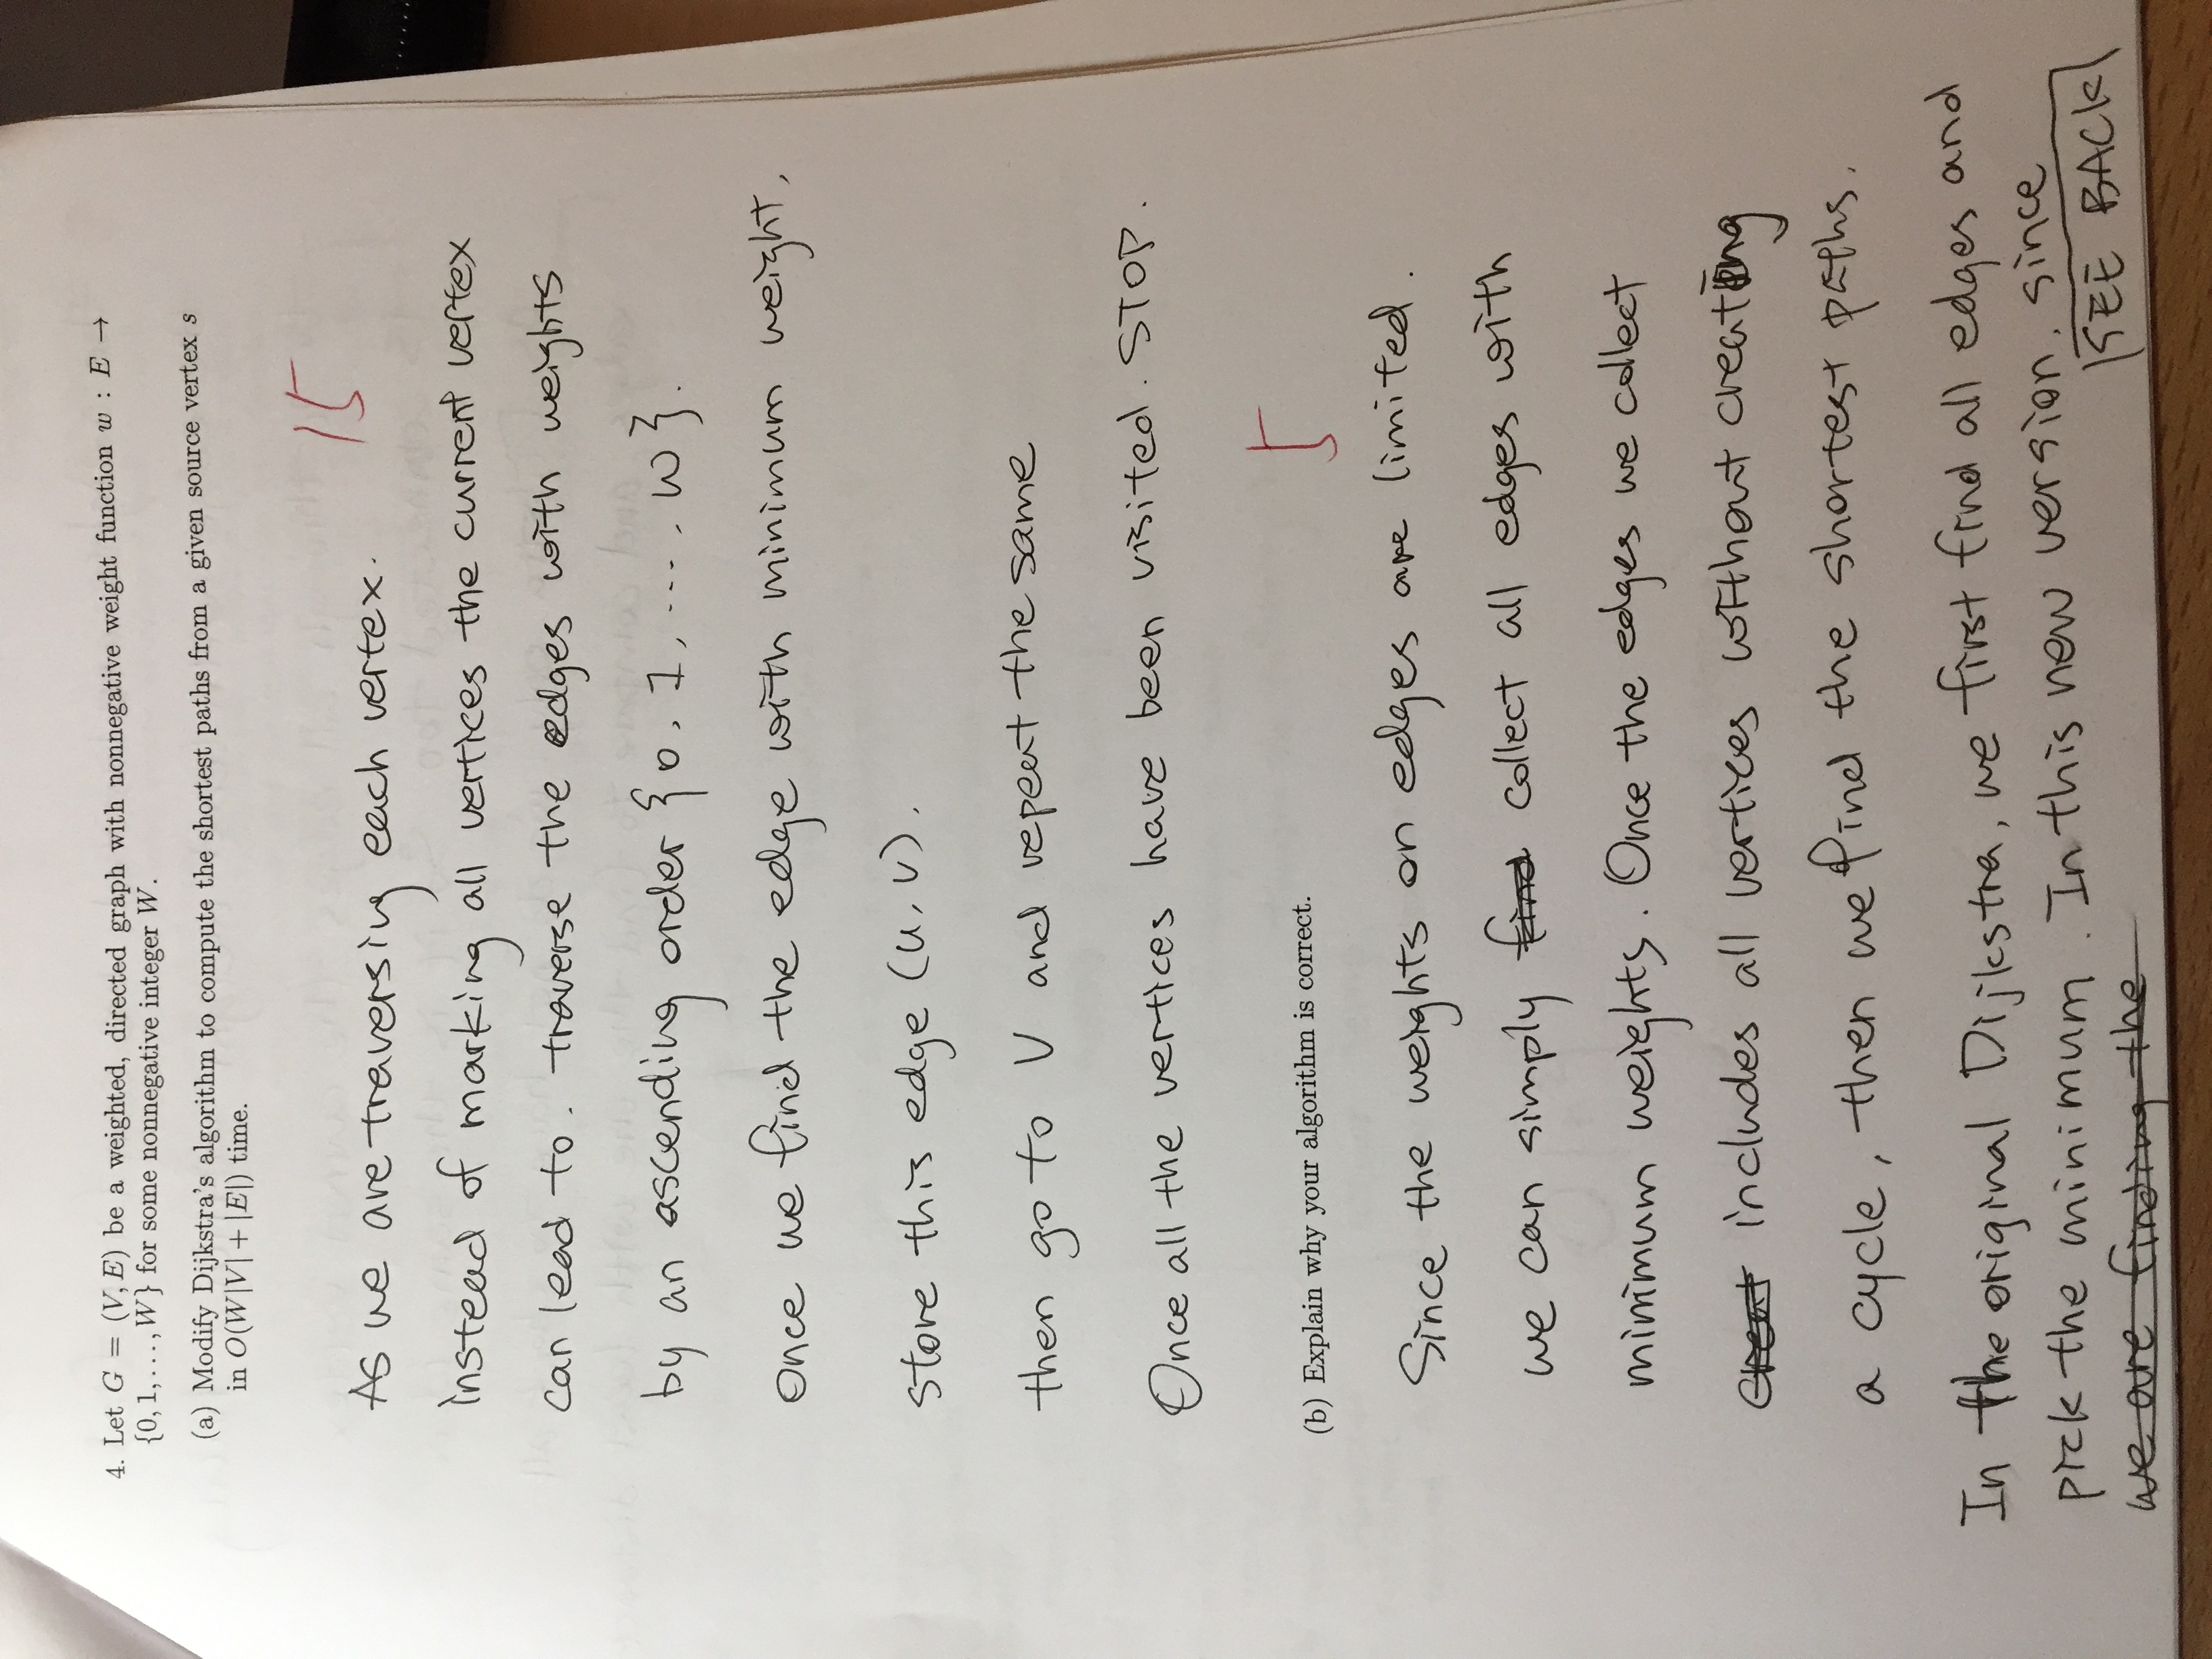 4. Let G = (V, E) be a weighted, directed graph with nonnegative weight function w : E →
{0, 1, . . . , W} for some nonnegative integer W.
(a) Modify Dijkstra's algorithm to compute the shortest paths from a given source vertex s
in O(W|V| + |E|) time.
15
As we are traversing each vertex.
instead of marking all vertices the current vertex
can lead to. traverse the edges with weights
by an ascending order {0, 1, ..., W}.
Once we find the edge with minimum weight,
store this edge (u, v).
then go to V and repeat the same
Once all the vertices have been visited. STOP.
(b) Explain why your algorithm is correct.
5
Since the weights on edges are limited.
we can simply find collect all edges with
minimum weights. Once the edges we collect
creat includes all vertices without creating
a cycle, then we find the shortest paths.
In the original Dijkstra, we first find all edges and
pick the minimum. In this new version, since
we are finding the
SEE BACK